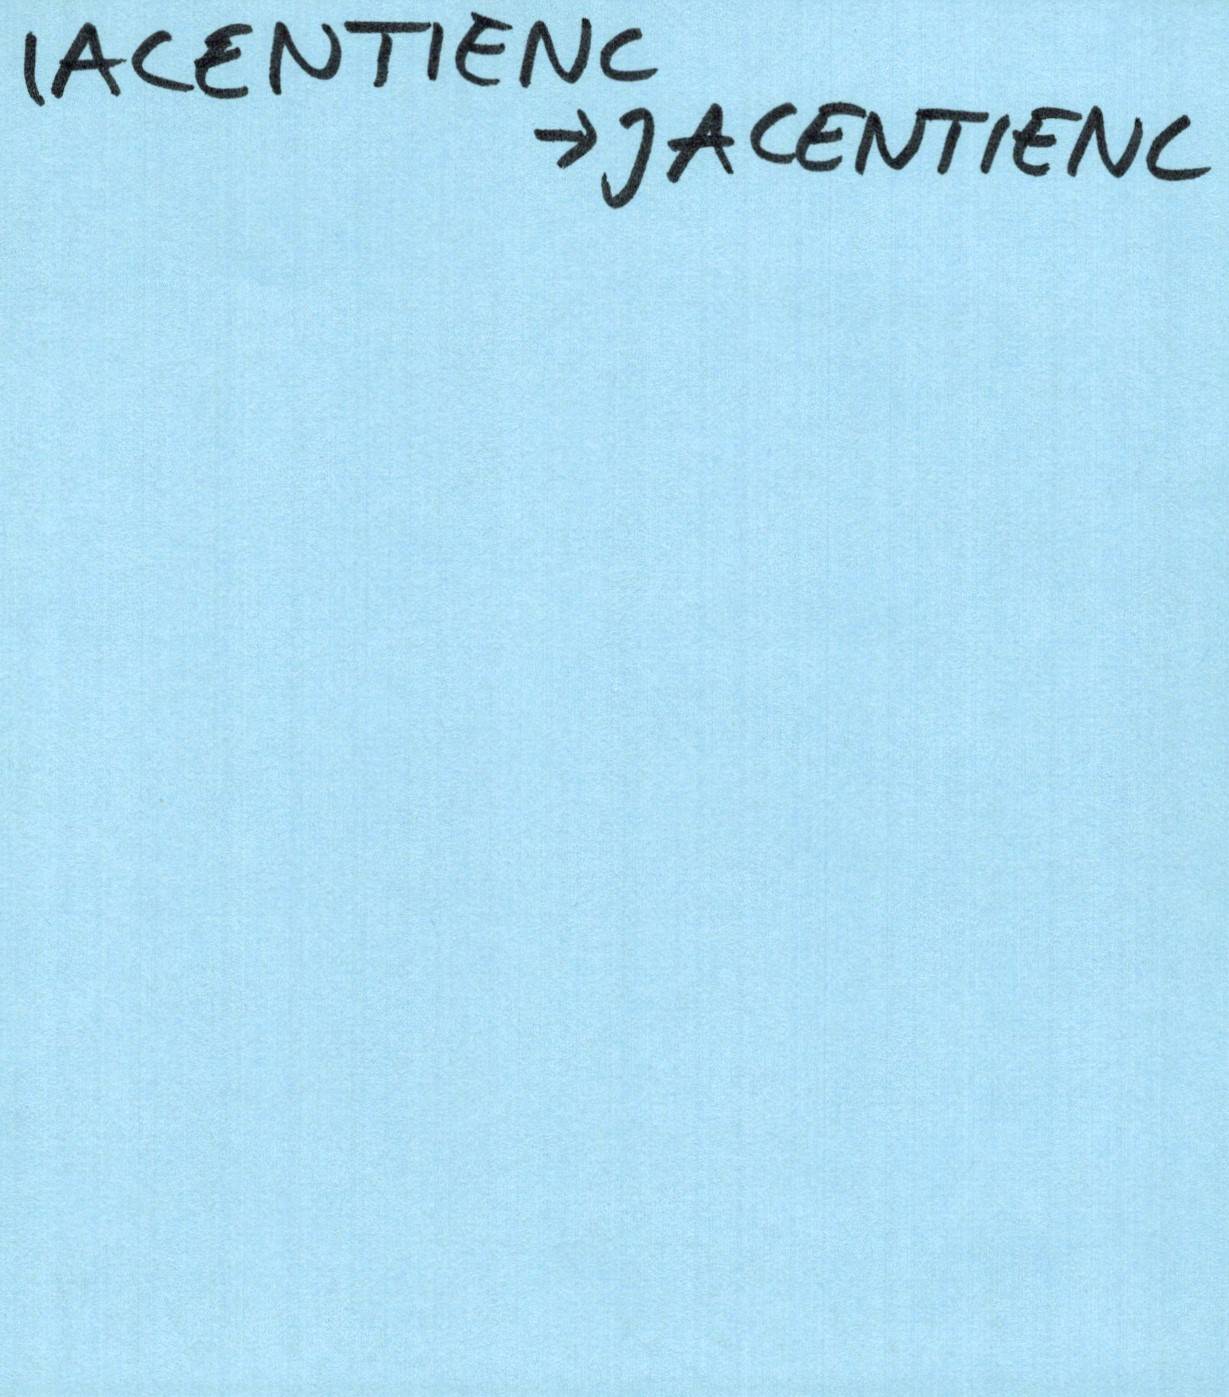 IACENTIENC
→JACENTIENC